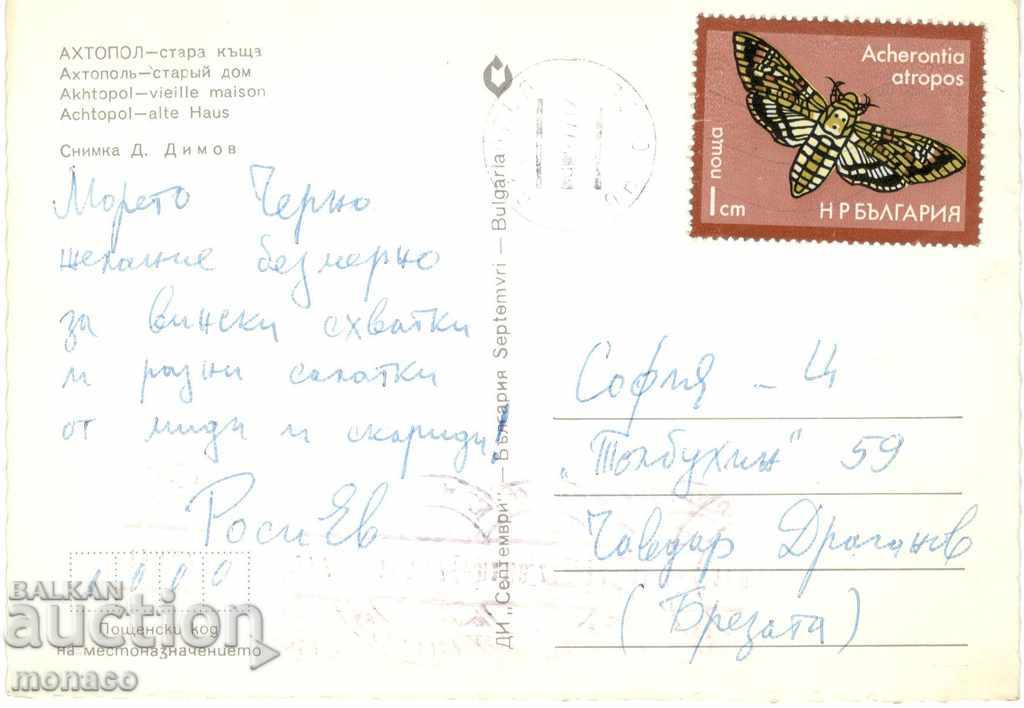 АХТОПОЛ—стара къща
Ахтополь—старый дом
Akhtopol—vieille maison
Achtopol—alte Haus
Снимка Д. Димов
Морето Черно
желание безмерно
за вински схватки
и разни салатки
от миди и скариди!
Роси Ев
Пощенски код
на местоназначението
ДИ „Септември" — България Septemvri — Bulgaria
Acherontia
atropos
поща
1 cm
НРБЪЛГАРИЯ
София - Ц
„Толбухин" 59
Чавдар Драганов
(Брезата)
BALKAN
auction
monaco